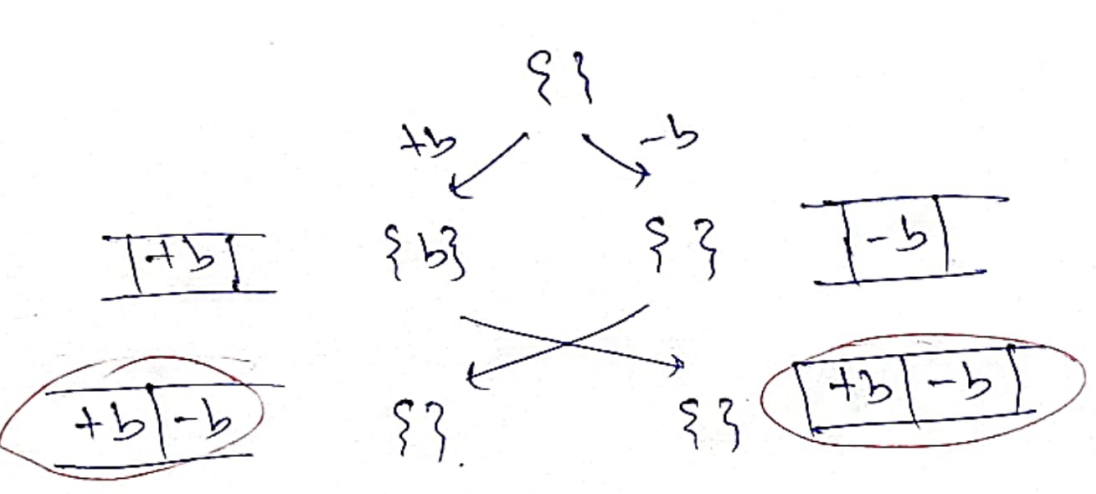 { }
+b -b
+b {b} { } -b
+b -b { }. { } +b -b